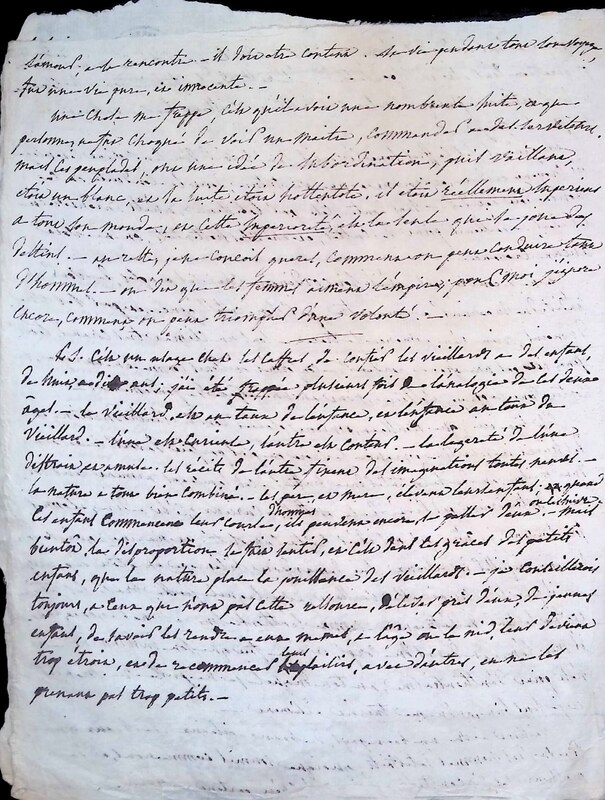 l'amour, a la rencontre - il doit etre content. Sa vie pendant tout son voyage,
fut une vie pure, et innocente. -
une chose me frappe, c'est qu'il avoit une nombreuse suite, et que
personne, n'etoit choqué de voir un maitre, commander a des serviteurs,
mais ces peuplades, ont une idée de subordination, puis vaillant,
etoit un blanc, et la suite etoit hottentote, il etoit réellement superieur
a tout son monde, et cette superiorité, est la seule que se joue des
destins. - au reste, je ne concois guere, comment on peut conduire tant
d'hommes - on dit que les femmes aiment l'empire; pour moi j'ignore
encore, comment on peut triompher d'une volonté. -
P.S. C'est un usage chez les caffres, de confier les vieillards a des enfans,
de huit, a dix ans; j'ai été frappée plusieurs fois de l'analogie de ces deux
ages. - le vieillard, est au taux de l'enfance, et l'enfance au taux du
vieillard. - l'une est curieuse, l'autre est content. - la legereté de l'une
distrait et amuse. les récits de l'autre tiennent des imaginations toutes neuves. -
la nature a tout bien combiné. - les pere, et mere, elevent leurs enfans. et quand
ces enfans commencent leur course d'hommes, ils peuvent encore, se passer d'eux. - ou les suivre. mais
bientôt la disproportion se fait sentir, et c'est dans les graces des petits
enfans, que la nature place la jouissance des vieillards. - je conseillerois
toujours, a ceux que n'ont pas cette ressource, d'élever près d'eux, de jeunes
enfans, de savoir les rendre a eux memes, a l'âge ou le nid, leur devient
trop étroit, et de recommencer leurs plaisirs, avec d'autres, en ne les
prenant pas trop petits. -